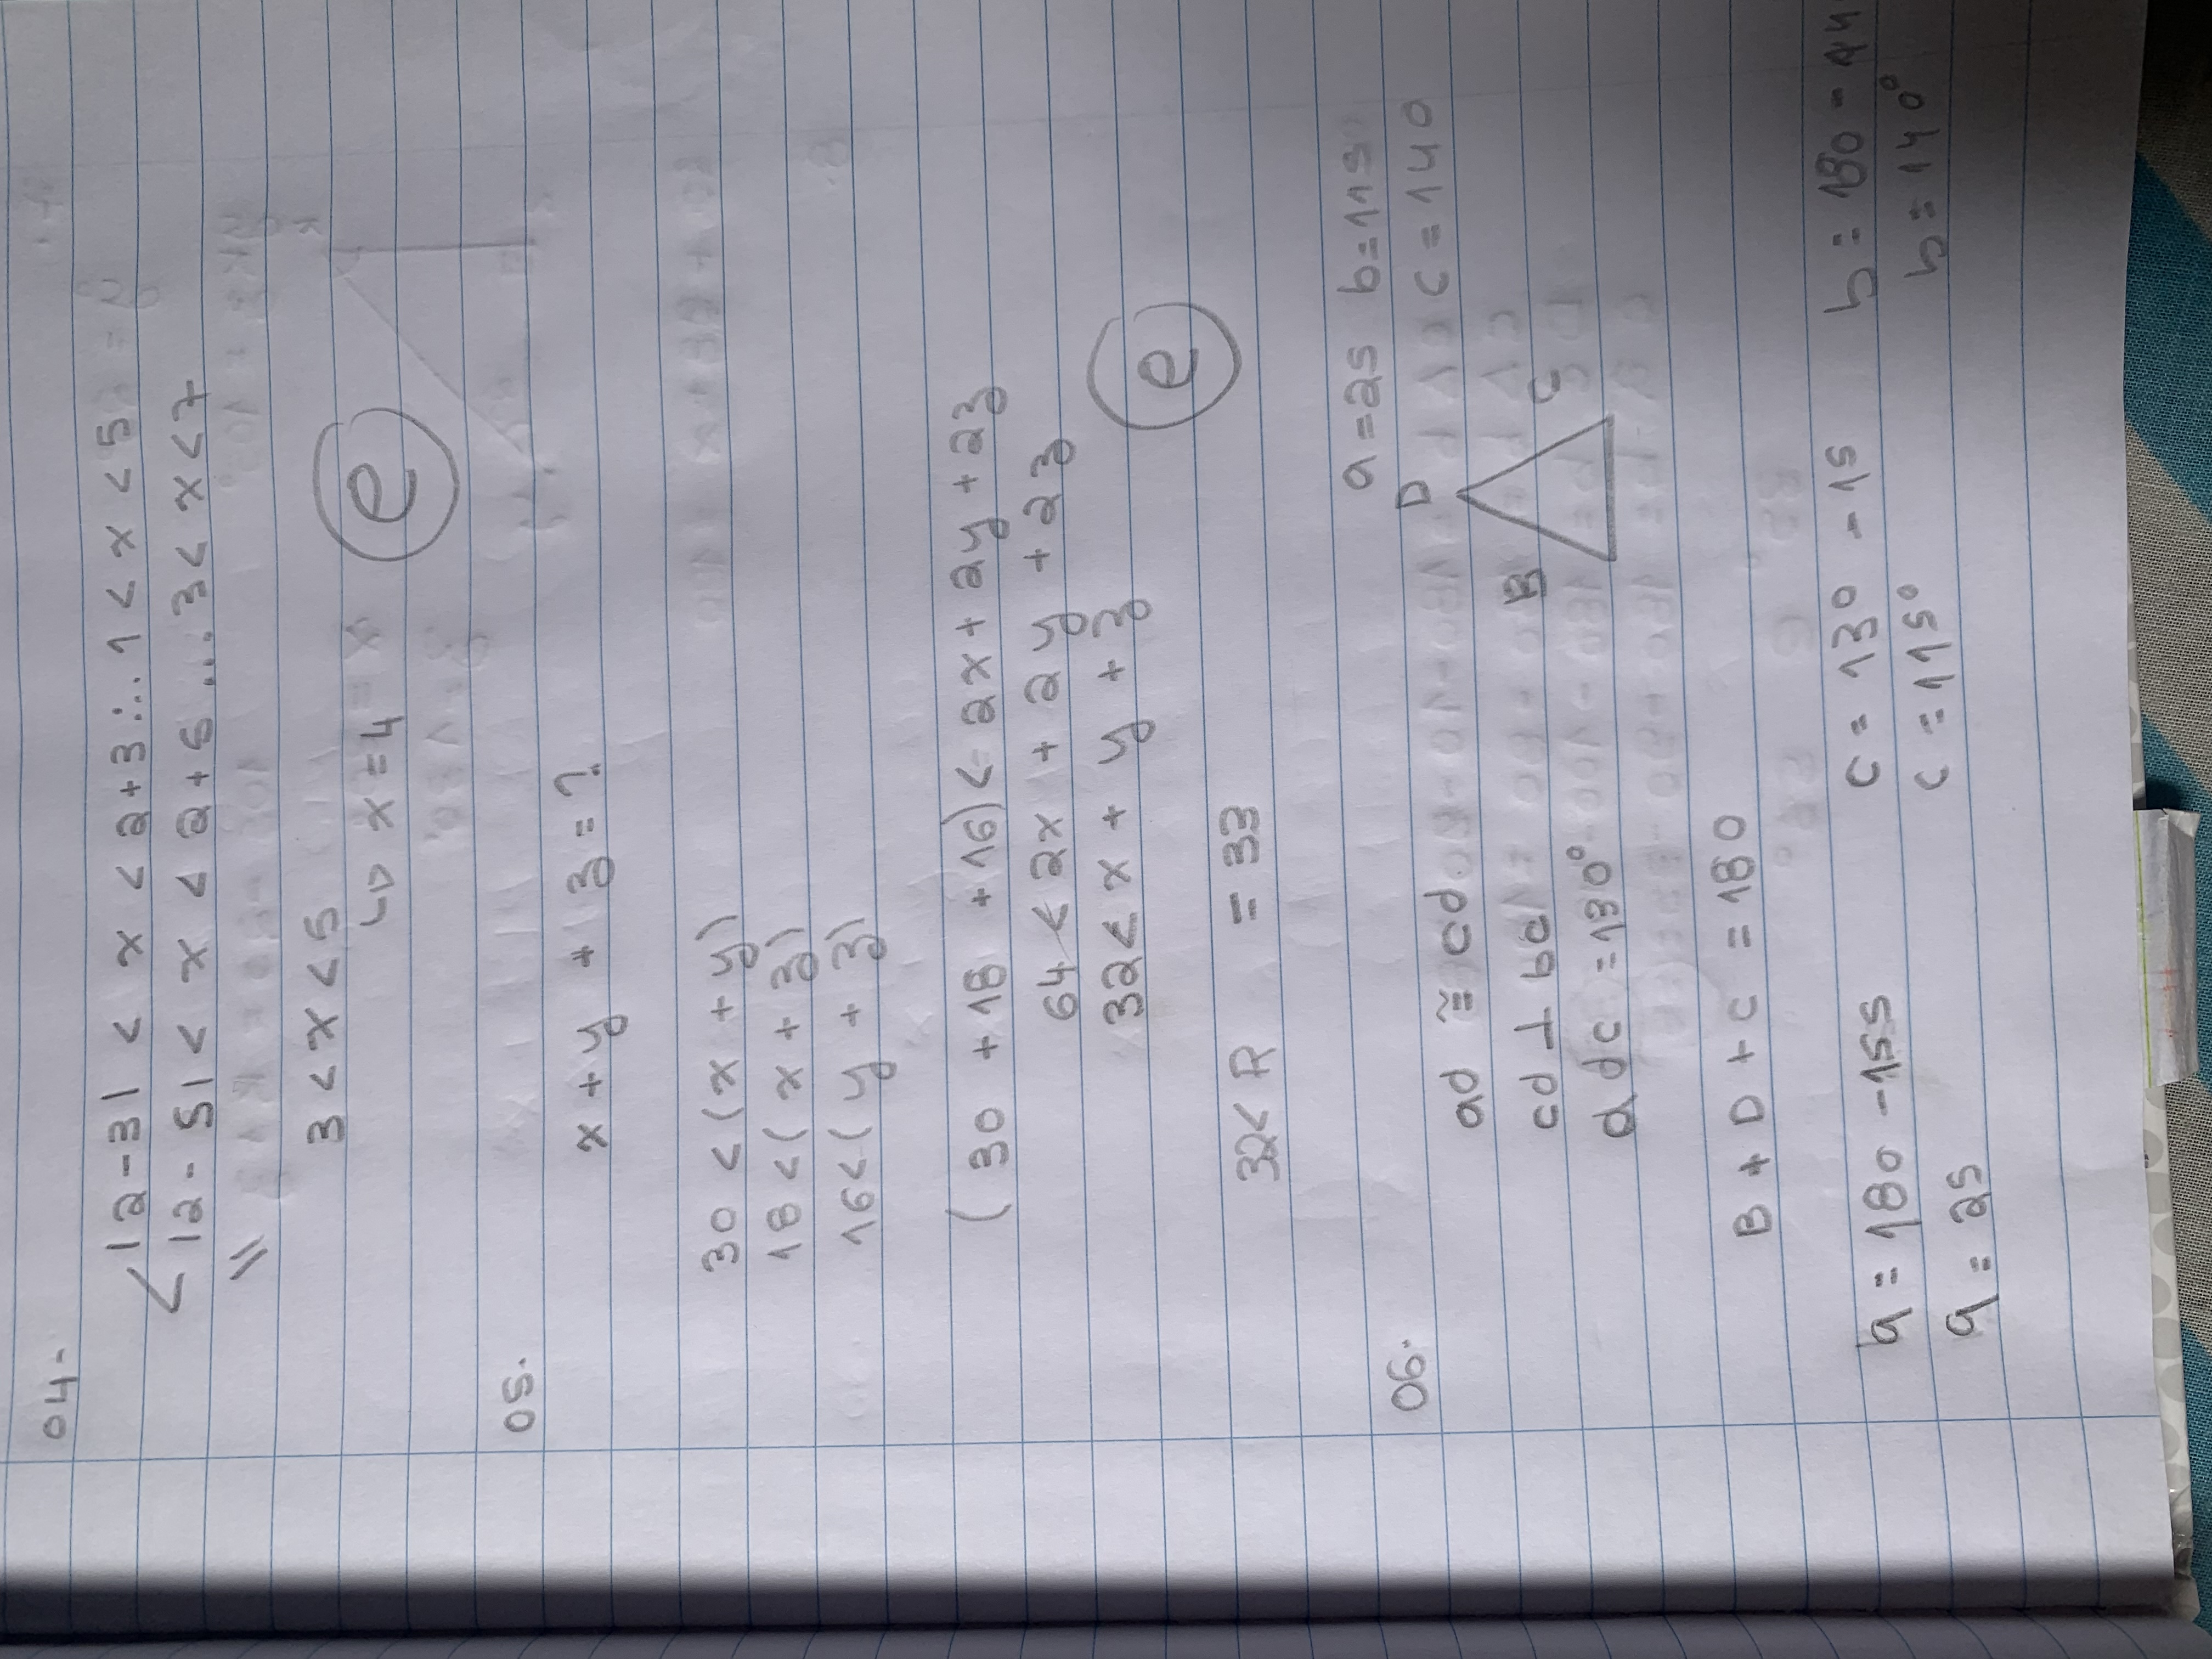 04-
|2-3| < x < 2+3 ∴ 1 < x < 5
|2-5| < x < 2+5 ... 3 < x < 7
3 < x < 5
↳ x = 4
e
05.
x + y + z = ?
30 < (x + y)
18 < (x + z)
16 < (y + z)
(30 + 18 + 16) < 2x + 2y + 2z
64 < 2x + 2y + 2z
32 < x + y + z
e
32 < R = 33
a = 25 b = 115
06.
D c = 140
ad ≅ cd
cd ⊥ bc B C
a dc = 130°
B + D + C = 180
a = 180 - 155 c = 130 - 15 b = 180 -
a = 25 c = 115° b = 140°